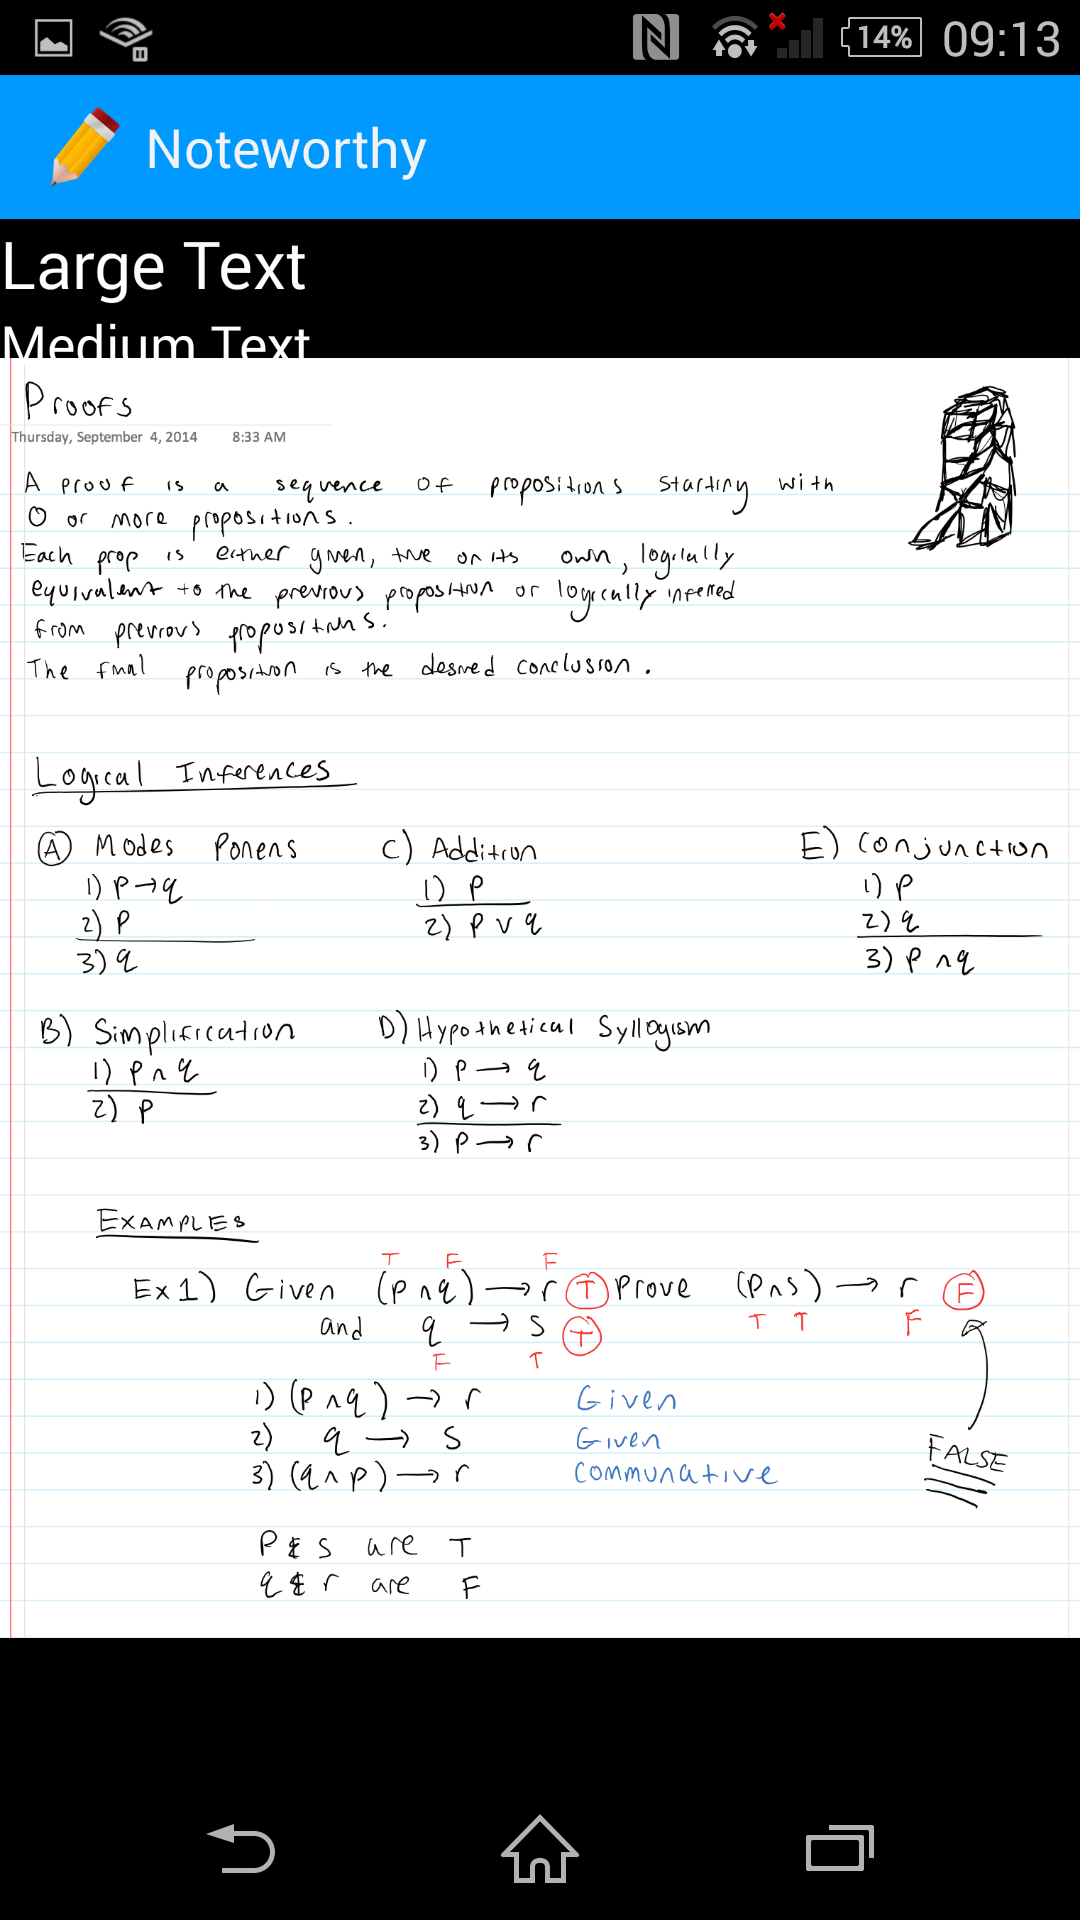 14% 09:13
Noteworthy
Large Text
Medium Text
Proofs
Thursday, September 4, 2014 8:33 AM
A proof is a sequence of propositions starting with
0 or more propositions.
Each prop is either given, true on its own, logically
equivalent to the previous proposition or logically inferred
from previous propositions.
The final proposition is the desired conclusion.
Logical Inferences
A) Modes Ponens
1) p → q
2) p
3) q
C) Addition
1) p
2) p ∨ q
E) Conjunction
1) p
2) q
3) p ∧ q
B) Simplification
1) p ∧ q
2) p
D) Hypothetical Syllogism
1) p → q
2) q → r
3) p → r
EXAMPLES
T F F
Ex 1) Given (p ∧ q) → r T Prove (p ∧ s) → r F
and q → s T T T F
F T
1) (p ∧ q) → r Given
2) q → s Given
3) (q ∧ p) → r Communative
FALSE
P & S are T
q & r are F